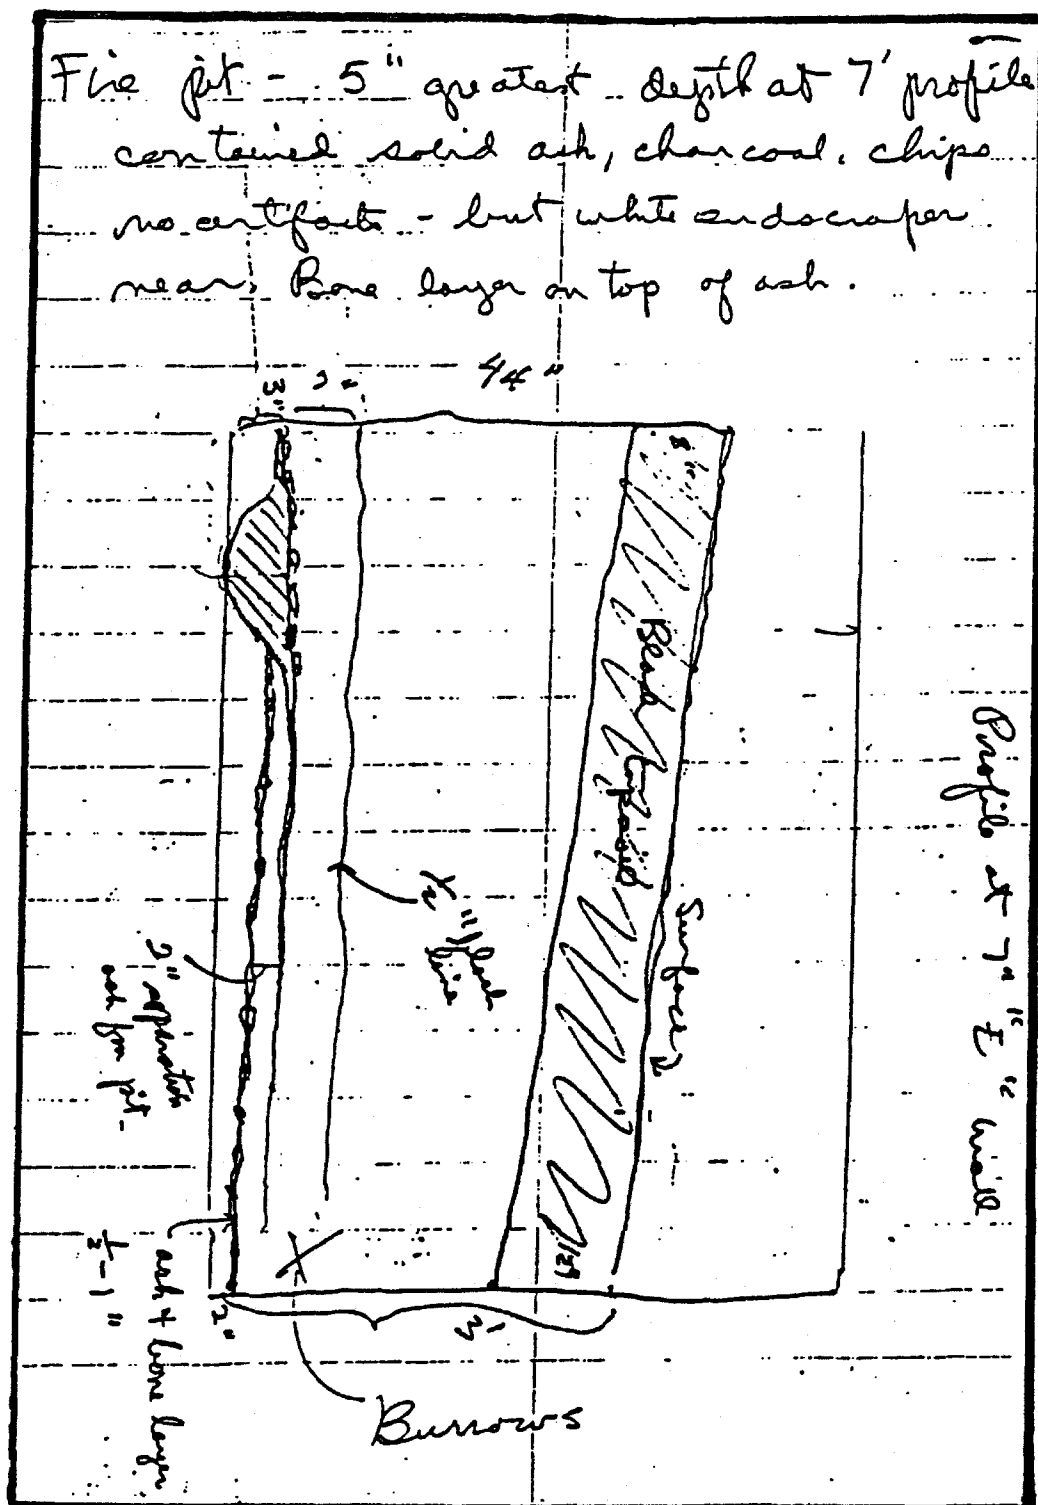 Fire pit - 5" greatest depth at 7' profile
contained solid ash, charcoal, chips
no artifacts - but white endscraper
near. Bone layer on top of ash.
44"
3"
2"
8"
Black topsoil
Surface
Profile at 7" "E" wall
½" black
line
2" separation
ash from pit -
ash + bone layer
½ - 1"
2"
3'
Burrows